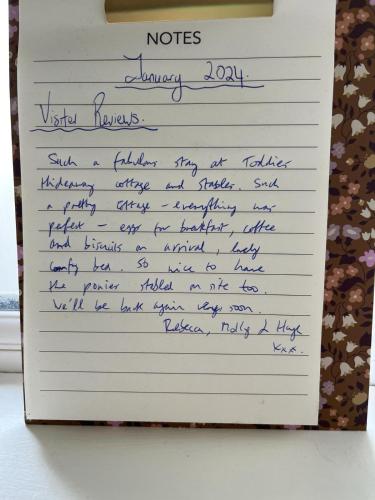 NOTES
January 2024.
Visitor Reviews.
Such a fabulous stay at Toddies
Hideaway cottage and stables. Such
a pretty cottage - everything was
perfect - eggs for breakfast, coffee
and biscuits on arrival, lovely
comfy bed. So nice to have
the ponies stabled on site too.
We'll be back again very soon.
Rebecca, Molly &
xxx.